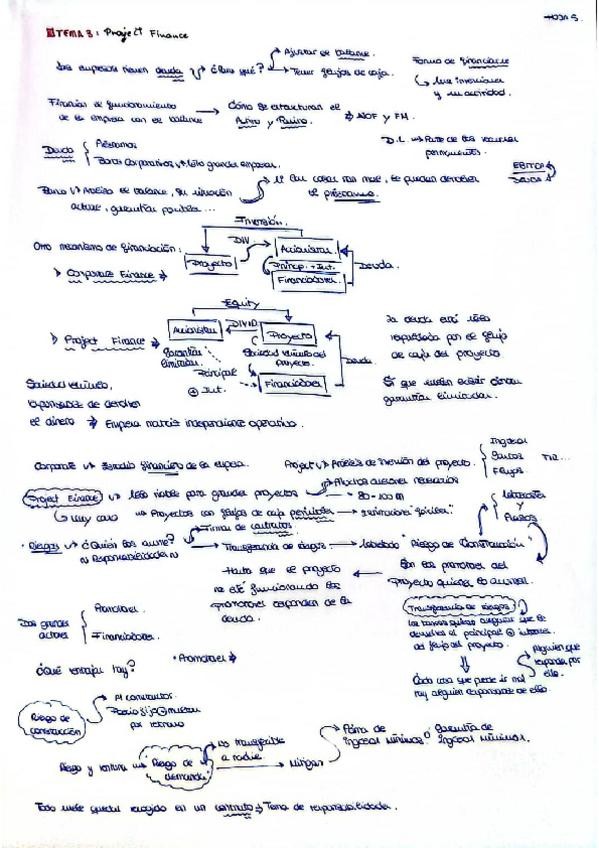 HOJA 5
TEMA 3: Project Finance
Las empresas tienen deuda → ¿Para qué? Ajustar el balance.
Tener flujos de caja.
Forma de financiarse
sus inversiones
y su actividad.
de la empresa con el balance → Cómo se estructuran el
Activo y Pasivo → NOF y FM.
Deuda { Préstamos
Bonos Corporativos → Sólo grandes empresas.
permanentes.
EBITDA
DEUDA
Banco → Análisis de balance, su situación
actual, garantías posibles...
el préstamo.
Inversión
Otro mecanismo de financiación:
→ Corporate Finance → Proyecto DIV Accionistas
Princip. + Int.
Financiadores
Deuda.
Equity
→ Project Finance → Accionistas DIVID Proyecto
Garantías
limitadas.
Sociedad vehículo del
proyecto.
Principal
+ Int.
Financiadores
Deuda
La deuda está sólo
respaldada por el flujo
de caja del proyecto
Sí que suelen existir ciertas
garantías limitadas.
Sociedad vehículo,
responsable de devolver
el dinero → Empresa matriz independiente operativo.
Corporate → Estudio financiero de la empresa.
Project → Análisis de inversión del proyecto. { Ingresos
Gastos
Flujos
TIR...
Project Finance → Sólo viable para grandes proyectos
Muchos asesores necesarios
80-100 m
Muy caro
→ Proyectos con flujos de caja
Firma de contratos
• Riesgos → ¿Quién los asume?
Responsabilidades
→ Transferencia de riesgos → "Riesgo de Construcción"
y
Plazos
Son los promotores del
proyecto quienes lo asumen.
Hasta que el proyecto
no esté funcionando los
promotores responden de la
deuda.
Dos grandes
actores { Promotores
Financiadores.
Transferencia de riesgos:
Los bancos quieren asegurar que se
devuelve el principal + intereses
del flujo del proyecto.
Alguien que
responda por
ello.
Cada cosa que puede ir mal
hay alguien responsable de ello
¿Qué ventajas hay?
• Promotores →
Riesgo de
construcción
Al constructor.
Precio fijo
por retraso
Riesgo y ventura → "Riesgo de
demanda"
No transferible
a nadie
→ Mitigar
Ingresos mínimos o Garantía de
ingresos mínimos.
Todo suele quedar recogido en un contrato → Toma de responsabilidades.